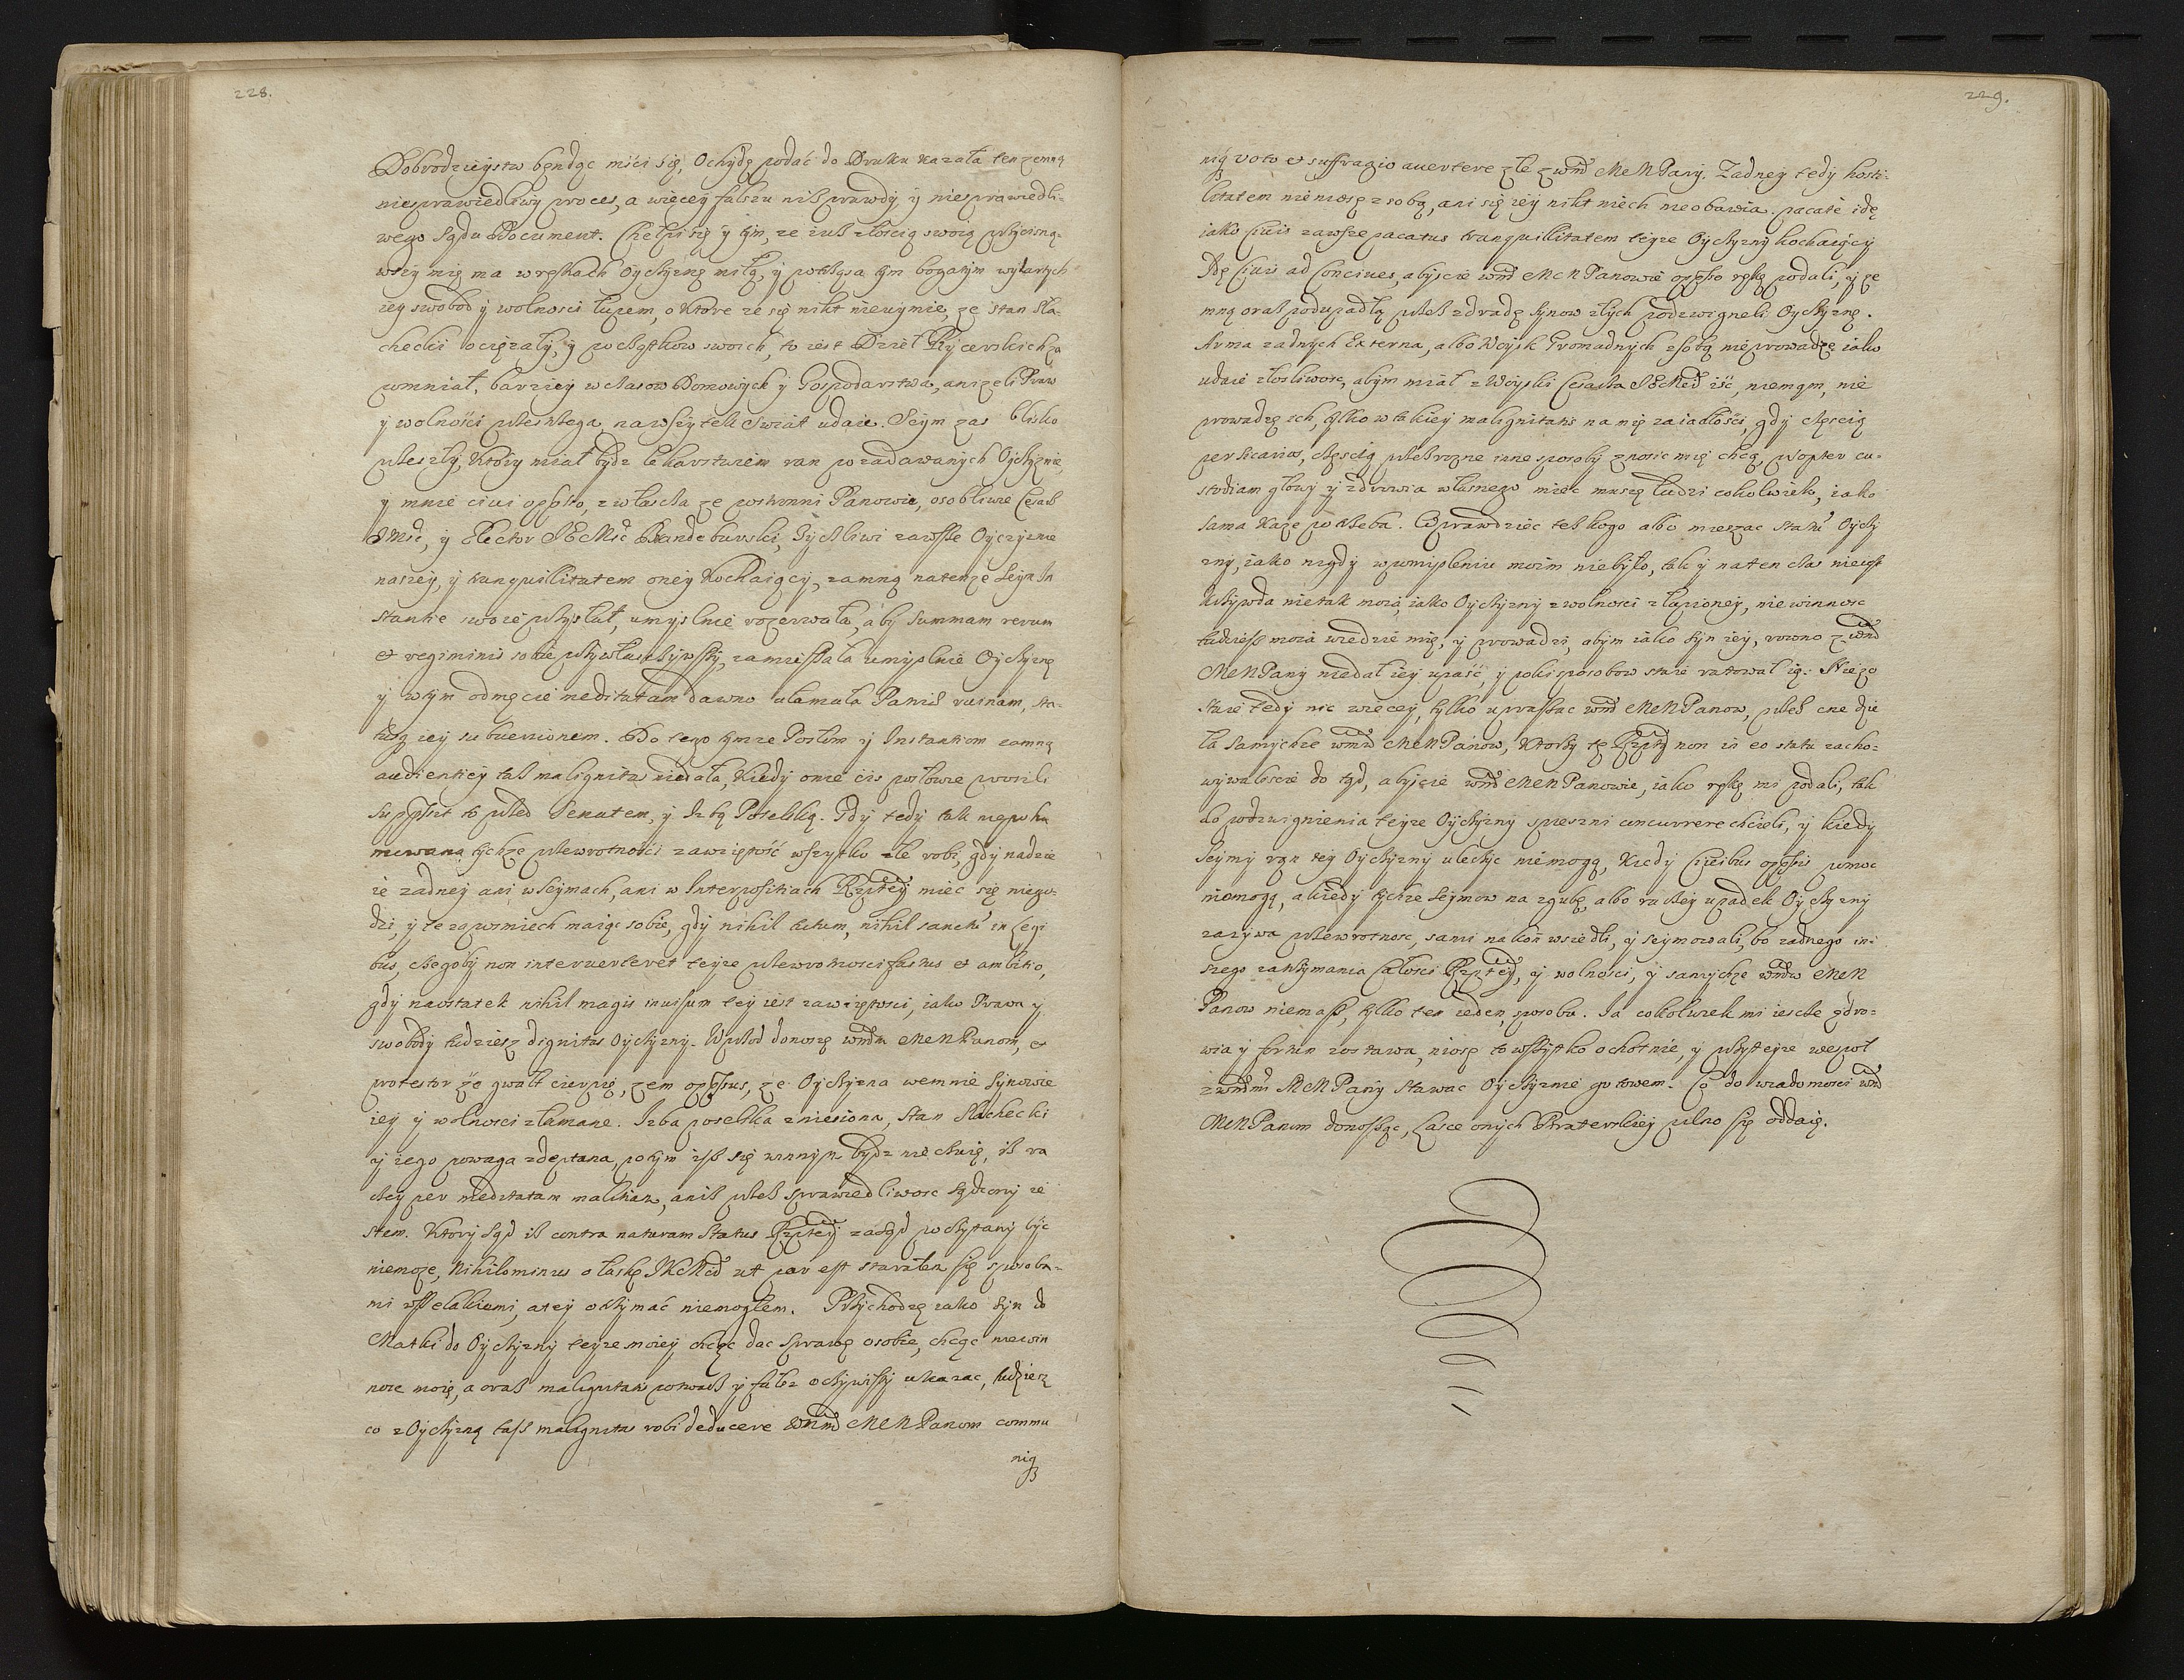 228.
Dobrodzieystw będąc mści się, Ochydę podać do Druku kazała ten zemną
niesprawiedliwy proces, a więcey falszu niż prawdy y niesprawiedli-
wego Sądu Document. Chełpi się y tym, że iuż złością swoią przycisną-
wszy mię ma w rękach Oyczyznę miłą, y potrząsa iym bogatym wydartych
iey swobod y wolnosci łupem, o ktore że się nikt nieuymie, że stan Sla-
checki ociężały, y początkow swoich, to iest Dzieł Rycerskich za
pomniał, barziey wczasow Domowych y Gospodarstwa, aniżeli Praw
y wolności przestrzega, na wszytek Swiat udaie. Seym zas blisko
przeszły, ktory miał bydz lekarstwem ran pozadawanych Oyczyznie,
y mnie civi opp̃sso, zwłaszcza że postronni Panowie, osobliwie Cesarz
JMść, y Elector JEMść Brandeburski, Zyczliwi zawsze Oyczyznie
naszey, y tranquillitatem oney kochaiący, zamną na tenże Seym In
stantie swoie przysłał, umyslnie rozerwała, aby Summam rerum
et regiminis sobie przywłaszczywszy, zamieszała umyslnie Oyczyznę
y wtym odmęcie meditatam dawno ukowała Paniey ruinam, sta-
tusq iey subversionem. Do tego tymże Posłom y Instantiom zamną
audientiey taż malignitas niedała, kiedy onie ciż posłowie prosili
supp̃ssit to przed Senatem, y Izbą Poselską. Gdy tedy tak niepoha
mowana tychże przewrotności zawziętość wszytko złe robi, gdy nadzie
ie żadney ani w Seymach, ani w Interpositiach Rzptey miec się niego-
dzi, y te za posmiech maiąc sobie, gdy nihil tutum, nihil sancti in Legi
bus, czegoby non interverteret teyże przewrotności fastus et ambitio,
gdy naostatek nihil magis invisum tey iest zawziętosci, iako Prawa y
swobody tudziesz dignitas Oyczyzny. Wprzod donoszę wmm MMPanom, et
protestor że gwałt cierpię, żem opp̃ssus, że Oyczyzna wemnie Synowie
iey y wolnosci złamane. Izba poselska zniesiona, Stan Slachecki
y iego powaga zdeptana, potym iż się winnym bydz nie czuię, iż ra
czey per meditatam malitiam, aniż przez Sprawiedliwosc sądzony ie
stem. Ktory Sąd iż contra naturam Status Rzptey zasąd poczytany byc
niemoże, Nihilominus o łaskę JKMści ut par est starałem się sposoba-
mi wszelakiemi, a tey otrzymać niemogłem. Przychodzę iako Syn do
Matki do Oyczyzny teyże moiey chcąc dac Sprawę o sobie, chcąc niewin
nosc moię, a oraz malignitatis potwarz y fałsz oczywisty ukazac, tudziesz
co z Oyczyzną tasz malignitas robi deducere wmm MMPanom commu
nią
229.
nią voto et suffragio avertere złe z wmm MMPany. Zadney tedy hosti-
litatem nieniosę z sobą, ani się iey nikt niech nieobawia. pacate idę
iako Civis zawsze pacatus tranquillitatem teyże Oyczyzny kochaiący
Idę Civis ad Concives, abyscie wmm MMPanowie opp̃sso rękę podali, y ze
mną oraz podupadłą przez zdradę Synow złych podzwigneli Oyczyznę.
Arma zadnych Externa, albo Woysk Gromadnych zsobą nieprowadzę iako
udaie złosliwosc, abym miał z Woyski Cesarza JEMci iść, niemam, nie
prowadzę ich, tylko w takiey malignitatis na mię zaiadłości, gdy częscią
per sicarios, częscią przez rozne inne sposoby znosic mię chcą, propter cu-
stodiam głowy y zdrowia własnego miec muszę ludzi cokolwiek, iako
sama każe potrzeba. Wprawdziec też kogo albo mieszac statu Oyczy
zny, iako nigdy w pomysleniu moim niebyło, tak y na ten czas nieiest
Krzywda nietak moia, iako Oyczyzny z wolnosci złupioney, niewinnosc
tudziesz moia wiedzie mię, y prowadzi, abym iako Syn iey, rowno z wmm
MMPany niedał iey upaść, y poki sposobow staie ratował ią. Niezo
staie tedy nic więcey, tylko upraszac wmm MMPanow, przez cne dzie
ła samychże wmm MMPanow, ktorzy tę Rzptą non in eo statu zacho-
wywaliscie do tąd, abyscie wmm MMPanowie, iako rękę mi podali, tak
do podzwignienia teyże Oyczyzny spieszni concurrere chcieli, y kiedy
Seymy ran tey Oyczyzny uleczyc niemogą, kiedy Civibus opp̃ssis pomoc
niemogą, a kiedy tychże Seymow na zgubę, albo raczey upadek Oyczyzny
zażywa przewrotnosc, sami na koń wsiedli, y seymowali, bo zadnego in-
szego zatrzymania Całości Rzptey, y wolności, y samychże wmm MM
Panow niemasz, tylko ten ieden sposob. Ja cokolwiek mi iescze zdro-
wia y fortun zostawa, niosę to wszytko ochotnie, y przy teyże wespoł
z wmm MMPany stawac Oyczyznie gotowem. Co do wiadomosci wmm
MMPanom donosząc, Łasce onych Braterskiey pilno się oddaię.